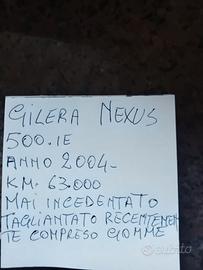 GILERA NEXUS
500.IE
ANNO 2004-
KM. 63.000
MAI INCEDENTATO
TAGLIANTATO RECENTENEN
TE COMPRESO GOMME
subito